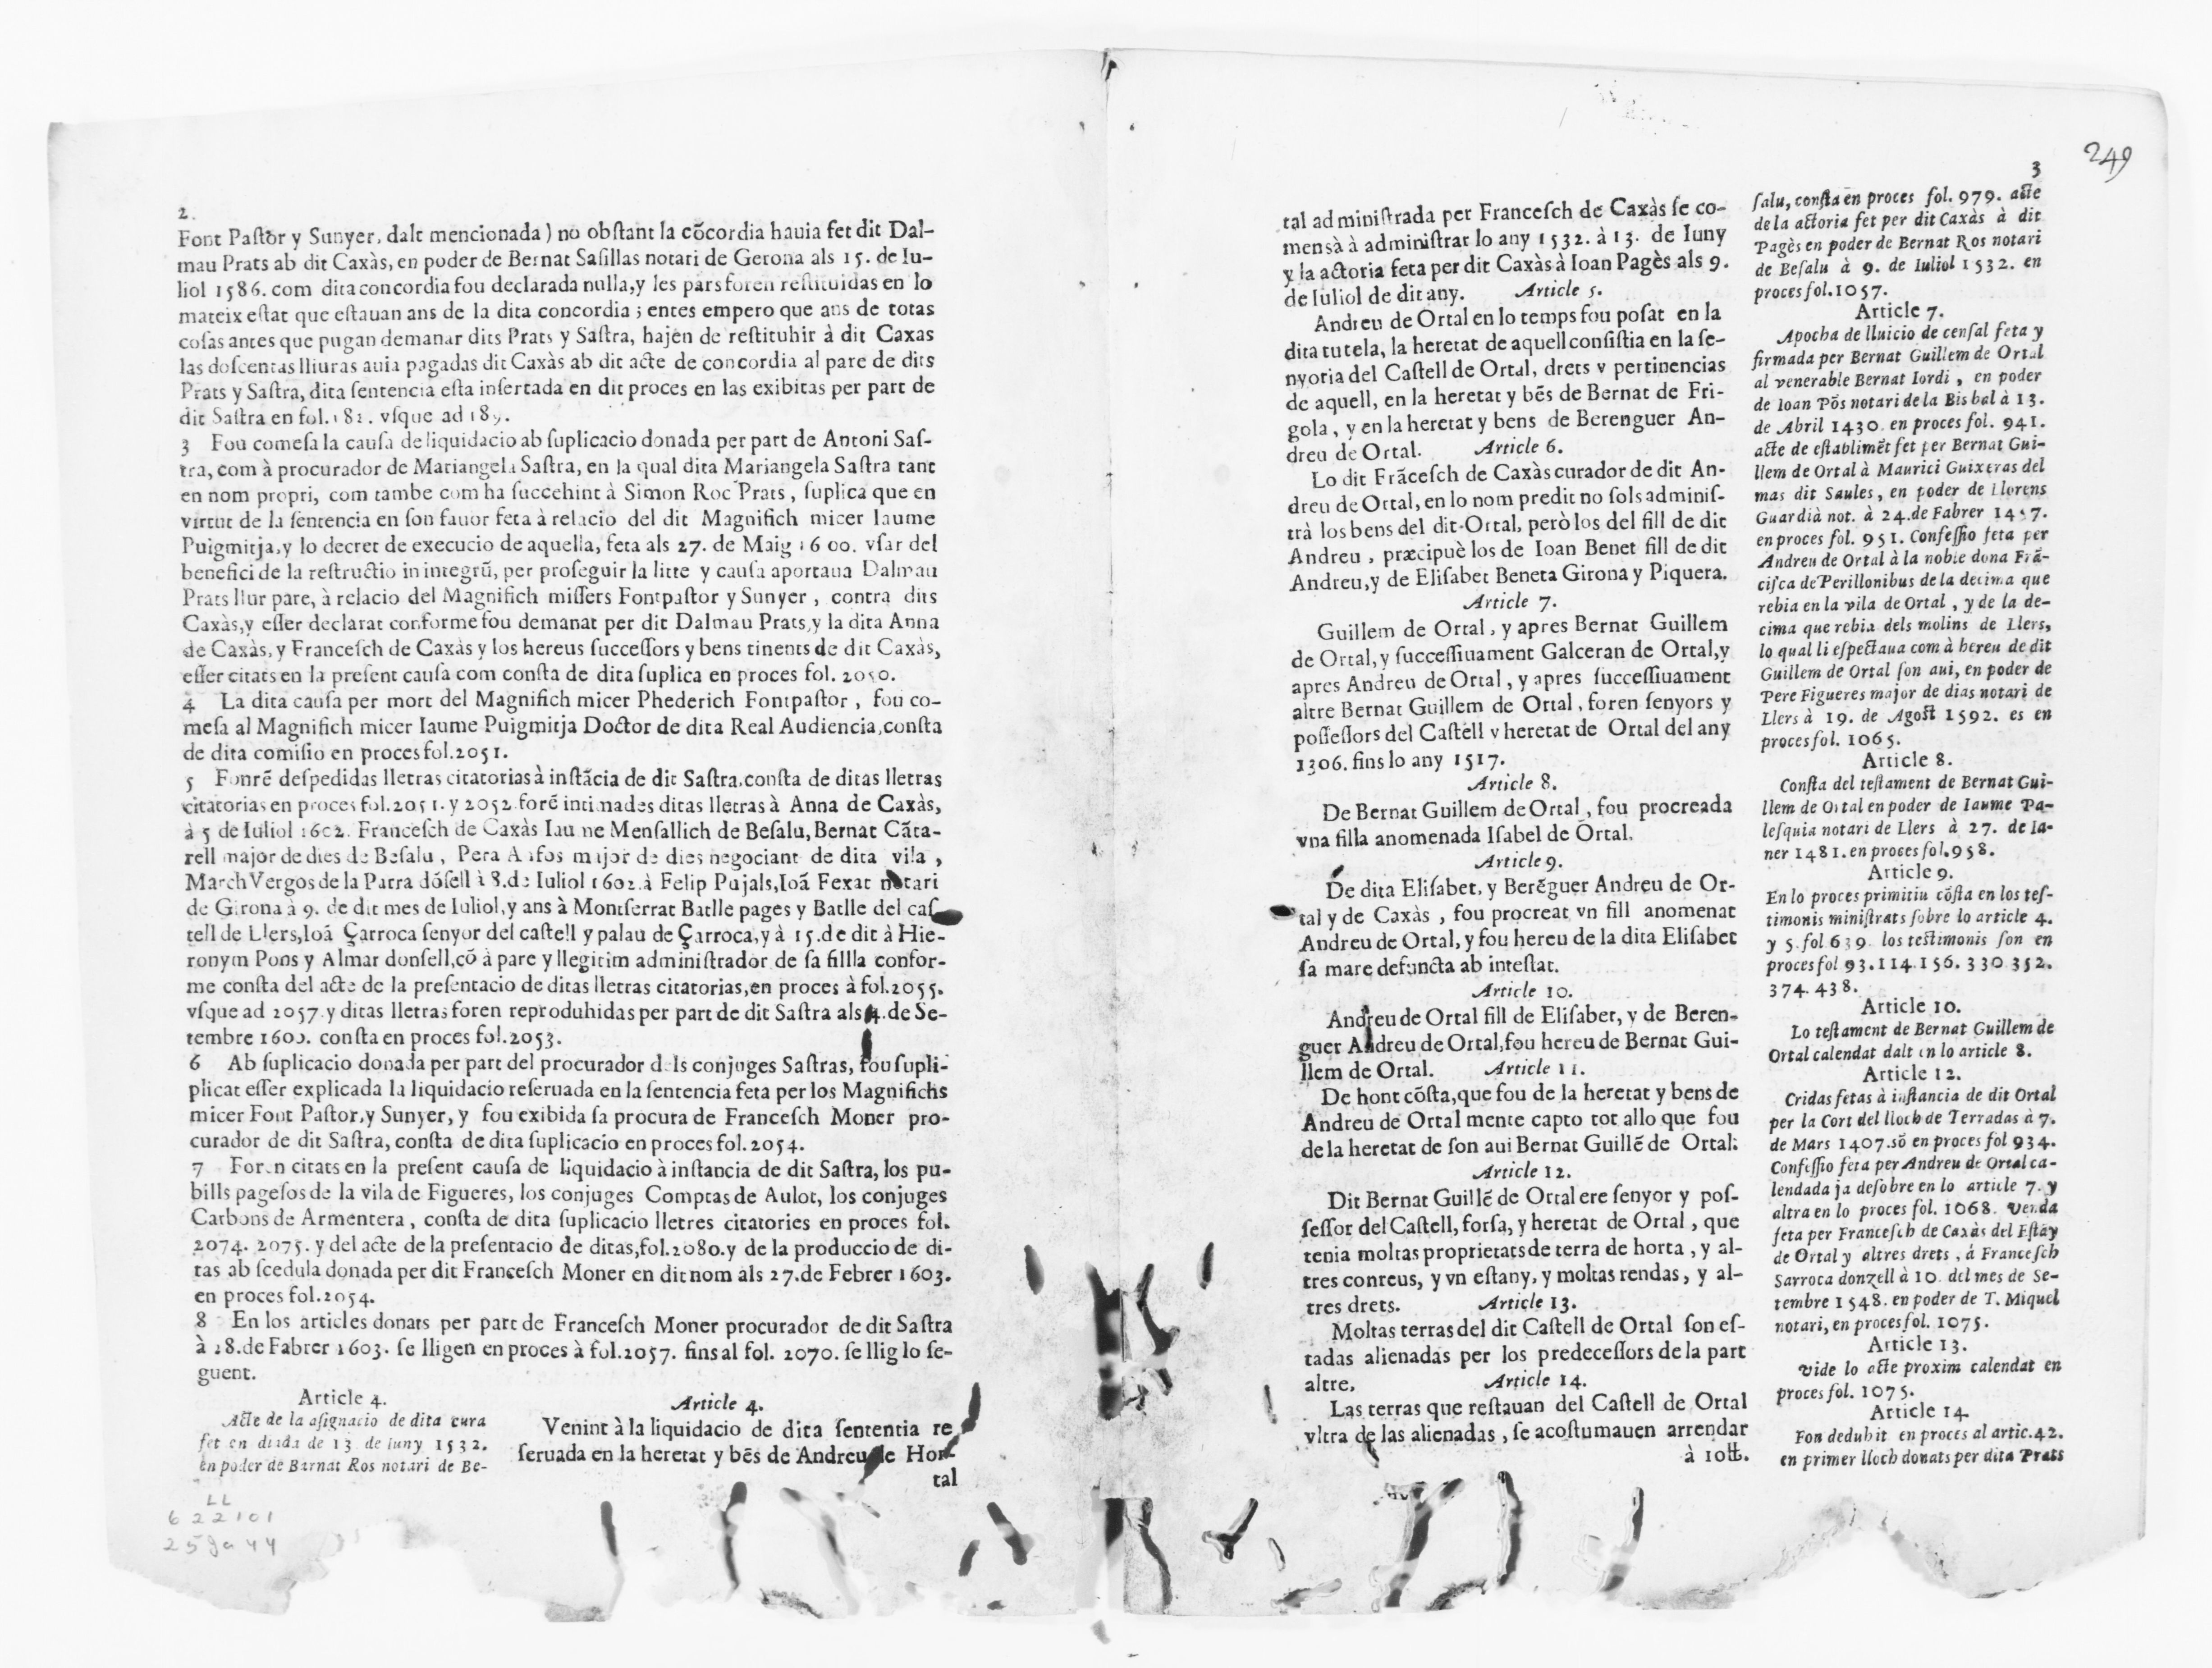 2.
Font Paſtor y Sunyer, dalt mencionada) no obſtant la cõcordia hauia fet dit Dal-
mau Prats ab dit Caxàs, en poder de Bernat Saſillas notari de Gerona als 15. de Iu-
liol 1586. com dita concordia fou declarada nulla, y les pars foren reſtituidas en lo
mateix eſtat que eſtauan ans de la dita concordia; entes empero que ans de totas
coſas antes que pugan demanar dits Prats y Saſtra, hajen de reſtituhir à dit Caxas
las doſcentas lliuras auia pagadas dit Caxàs ab dit acte de concordia al pare de dits
Prats y Saſtra, dita ſentencia eſta inſertada en dit proces en las exibitas per part de
dit Saſtra en fol. 182. vſque ad 189.
3 Fou comeſa la cauſa de liquidacio ab ſuplicacio donada per part de Antoni Saſ-
tra, com à procurador de Mariangela Saſtra, en la qual dita Mariangela Saſtra tant
en nom propri, com tambe com ha ſuccehint à Simon Roc Prats, ſuplica que en
virtut de la ſentencia en ſon fauor feta à relacio del dit Magnifich micer Iaume
Puigmitja, y lo decret de execucio de aquella, feta als 27. de Maig 1600. vſar del
benefici de la reſtructio in integrũ, per proſeguir la litte y cauſa aportaua Dalmau
Prats llur pare, à relacio del Magnifich miſſers Fontpaſtor y Sunyer, contra dits
Caxàs, y eſſer declarat conforme fou demanat per dit Dalmau Prats, y la dita Anna
de Caxàs, y Franceſch de Caxàs y los hereus ſucceſſors y bens tinents de dit Caxàs,
eſſer citats en la preſent cauſa com conſta de dita ſuplica en proces fol. 2050.
4 La dita cauſa per mort del Magnifich micer Phederich Fontpaſtor, fou co-
meſa al Magnifich micer Iaume Puigmitja Doctor de dita Real Audiencia, conſta
de dita comiſio en proces fol. 2051.
5 Fonrẽ deſpedidas lletras citatorias à inſtãcia de dit Saſtra, conſta de ditas lletras
citatorias en proces fol. 2051. y 2052 forẽ intimades ditas lletras à Anna de Caxàs,
à 5 de Iuliol 1602. Franceſch de Caxàs Iaume Menſallich de Beſalu, Bernat Cãta-
rell major de dies de Beſalu, Pera Anfos major de dies negociant de dita vila,
March Vergos de la Parra dóſell à 8. de Iuliol 1602. à Felip Pujals, Ioã Fexat notari
de Girona à 9. de dit mes de Iuliol, y ans à Montſerrat Batlle pages y Batlle del caſ-
tell de Llers, Ioã Çarroca ſenyor del caſtell y palau de Çarroca, y à 15. de dit à Hie-
ronym Pons y Almar donſell, cõ à pare y llegitim adminiſtrador de ſa fillla confor-
me conſta del acte de la preſentacio de ditas lletras citatorias, en proces à fol. 2055.
vſque ad 2057. y ditas lletras foren reproduhidas per part de dit Saſtra als 4. de Se-
tembre 1600. conſta en proces fol. 2053.
6 Ab ſuplicacio donada per part del procurador dels conjuges Saſtras, fou ſupli-
plicat eſſer explicada la liquidacio reſeruada en la ſentencia feta per los Magnifichs
micer Font Paſtor, y Sunyer, y fou exibida ſa procura de Franceſch Moner pro-
curador de dit Saſtra, conſta de dita ſuplicacio en proces fol. 2054.
7 Foren citats en la preſent cauſa de liquidacio à inſtancia de dit Saſtra, los pu-
bills pageſos de la vila de Figueres, los conjuges Comptas de Aulot, los conjuges
Carbons de Armentera, conſta de dita ſuplicacio lletres citatories en proces fol.
2074. 2075. y del acte de la preſentacio de ditas, fol. 2080. y de la produccio de di-
tas ab ſcedula donada per dit Franceſch Moner en dit nom als 27. de Febrer 1603.
en proces fol. 2054.
8 En los articles donats per part de Franceſch Moner procurador de dit Saſtra
à 28. de Fabrer 1603. ſe lligen en proces à fol. 2057. fins al fol. 2070. ſe llig lo ſe-
guent.
Article 4.
Acte de la aſignacio de dita cura
fet en diada de 13 de iuny 1532.
en poder de Barnat Ros notari de Be-
Article 4.
Venint à la liquidacio de dita ſententia re
ſeruada en la heretat y bẽs de Andreu de Hor-
tal
LL
622101
25 Ja 44
249
3
tal adminiſtrada per Franceſch de Caxàs ſe co-
mensà à adminiſtrar lo any 1532. à 13. de Iuny
y la actoria feta per dit Caxàs à Ioan Pagès als 9.
de Iuliol de dit any. Article 5.
Andreu de Ortal en lo temps fou poſat en la
dita tutela, la heretat de aquell conſiſtia en la ſe-
nyoria del Caſtell de Ortal, drets y pertinencias
de aquell, en la heretat y bẽs de Bernat de Fri-
gola, y en la heretat y bens de Berenguer An-
dreu de Ortal. Article 6.
Lo dit Frãceſch de Caxàs curador de dit An-
dreu de Ortal, en lo nom predit no ſols adminiſ-
trà los bens del dit Ortal, però los del fill de dit
Andreu, præcipuè los de Ioan Benet fill de dit
Andreu, y de Eliſabet Beneta Girona y Piquera.
Article 7.
Guillem de Ortal, y apres Bernat Guillem
de Ortal, y ſucceſſiuament Galceran de Ortal, y
apres Andreu de Ortal, y apres ſucceſſiuament
altre Bernat Guillem de Ortal, foren ſenyors y
poſſeſſors del Caſtell y heretat de Ortal del any
1306. fins lo any 1517.
Article 8.
De Bernat Guillem de Ortal, fou procreada
vna filla anomenada Iſabel de Ortal.
Article 9.
De dita Eliſabet, y Berẽguer Andreu de Or-
tal y de Caxàs, fou procreat vn fill anomenat
Andreu de Ortal, y fou hereu de la dita Eliſabet
ſa mare defuncta ab inteſtat.
Article 10.
Andreu de Ortal fill de Eliſabet, y de Beren-
guer Andreu de Ortal, fou hereu de Bernat Gui-
llem de Ortal. Article 11.
De hont cõſta, que fou de la heretat y bens de
Andreu de Ortal mente capto tot allo que fou
de la heretat de ſon aui Bernat Guillẽ de Ortal.
Article 12.
Dit Bernat Guillẽ de Ortal ere ſenyor y poſ-
ſeſſor del Caſtell, forſa, y heretat de Ortal, que
tenia moltas proprietats de terra de horta, y al-
tres conreus, y vn eſtany, y moltas rendas, y al-
tres drets. Article 13.
Moltas terras del dit Caſtell de Ortal ſon eſ-
tadas alienadas per los predeceſſors de la part
altre. Article 14.
Las terras que reſtauan del Caſtell de Ortal
vltra de las alienadas, ſe acoſtumauen arrendar
à 10 ₶.
ſalu, conſta en proces fol. 979. acte
de la actoria fet per dit Caxàs à dit
Pagès en poder de Bernat Ros notari
de Beſalu à 9. de Iuliol 1532. en
proces fol. 1057.
Article 7.
Apocha de lluicio de cenſal feta y
firmada per Bernat Guillem de Ortal
al venerable Bernat Iordi, en poder
de Ioan Põs notari de la Bisbal à 13.
de Abril 1430. en proces fol. 941.
acte de eſtablimẽt fet per Bernat Gui-
llem de Ortal à Maurici Guixeras del
mas dit Saules, en poder de Llorens
Guardià not. à 24. de Fabrer
en proces fol. 951. Confeſſio feta per
Andreu de Ortal à la noble dona Frã-
ciſca de Perillonibus de la decima que
rebia en la vila de Ortal, y de la de-
cima que rebia dels molins de Llers,
lo qual li eſpectaua com à hereu de dit
Guillem de Ortal ſon aui, en poder de
Pere Figueres major de dias notari de
Llers à 19. de Agoſt 1592. es en
proces fol. 1065.
Article 8.
Conſta del teſtament de Bernat Gui-
llem de Ortal en poder de Iaume Pa-
leſquia notari de Llers à 27. de Ia-
ner 1481. en proces fol. 958.
Article 9.
En lo proces primitiu cõſta en los teſ-
timonis miniſtrats ſobre lo article 4.
y 5. fol 639. los teſtimonis ſon en
proces fol 93. 114. 156. 330. 352.
374. 438.
Article 10.
Lo teſtament de Bernat Guillem de
Ortal calendat dalt en lo article 8.
Article 12.
Cridas fetas à inſtancia de dit Ortal
per la Cort del lloch de Terradas à 7.
de Mars 1407. sõ en proces fol 934.
Confeſſio feta per Andreu de Ortal ca-
lendada ja deſobre en lo article 7. y
altra en lo proces fol. 1068. Venda
feta per Franceſch de Caxàs del Eſtãy
de Ortal y altres drets, à Franceſch
Sarroca donzell à 10. del mes de Se-
tembre 1548. en poder de T. Miquel
notari, en proces fol. 1075.
Article 13.
Vide lo acte proxim calendat en
proces fol. 1075.
Article 14
Fon deduhit en proces al artic. 42.
en primer lloch donats per dita Prats